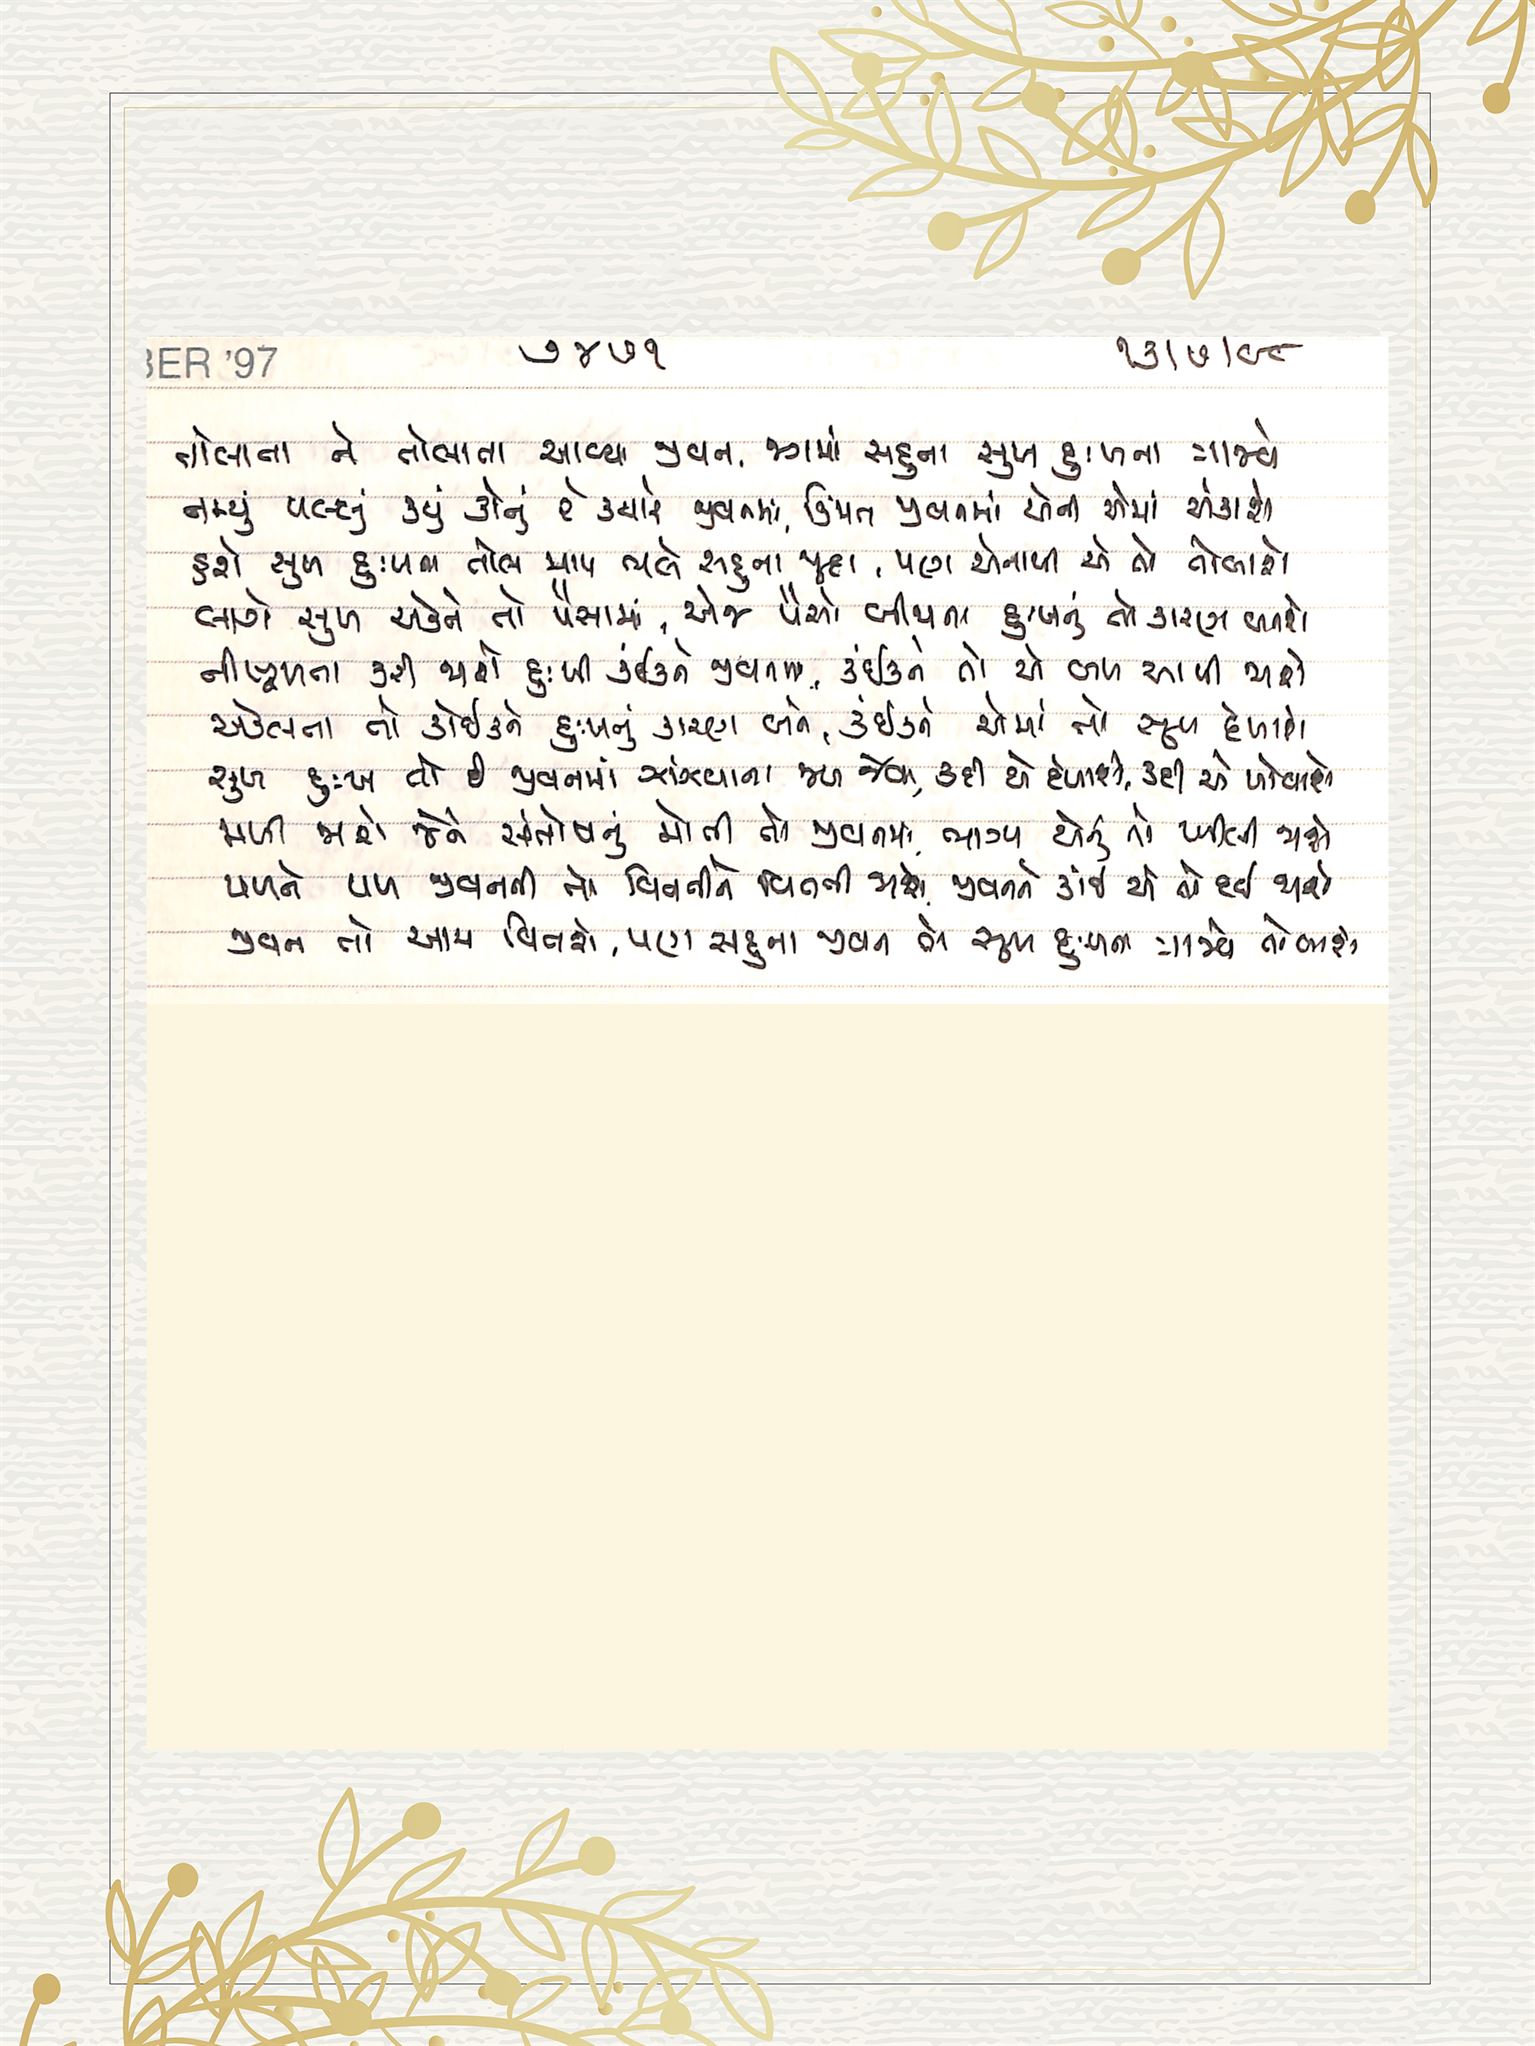 BER '97 ૭૪૭૧ ૧૩/૭/૯૮
તોલાતા ને તોલાતા આવ્યા જીવન, જગમાં સહુના સુખ દુઃખના ત્રાજવે
નમ્યું પલ્લું કયું કોનું રે ક્યારે જીવનમાં, કિંમત જીવનમાં એની એમાં અંકાશે
હશે સુખ દુઃખના તોલ માપ ભલે સહુના જુદા, પણ એનાથી એ તો તોલાશે
લાગે સુખ એકને તો પૈસામાં, એજ પૈસો બીજાના દુઃખનું તો કારણ બનશે
નીષ્ફળતા કરી જાશે દુઃખી કંઈકને જીવનમાં, કંઈકને તો એ બળ આપી જાશે
એકલતા તો કોઈકને દુઃખનું કારણ બને, કંઈકને એમાં તો સુખ દેખાશે
સુખ દુઃખ તો છે જીવનમાં ઝાંઝવાના જળ જેવા, કદી એ દેખાશે, કદી એ ખોવાશે
મળી જાશે જેને સંતોષનું મોતી તો જીવનમાં, ભાગ્ય એનું તો ખીલી જાશે
પળને પળ જીવનની તો વિતતીને વિતતી જાશે, જીવનને કાંઈ એ તો દઈ જાશે
જીવન તો આમ વિતશે, પણ સહુના જીવન તો સુખ દુઃખના ત્રાજવે તોલાશે